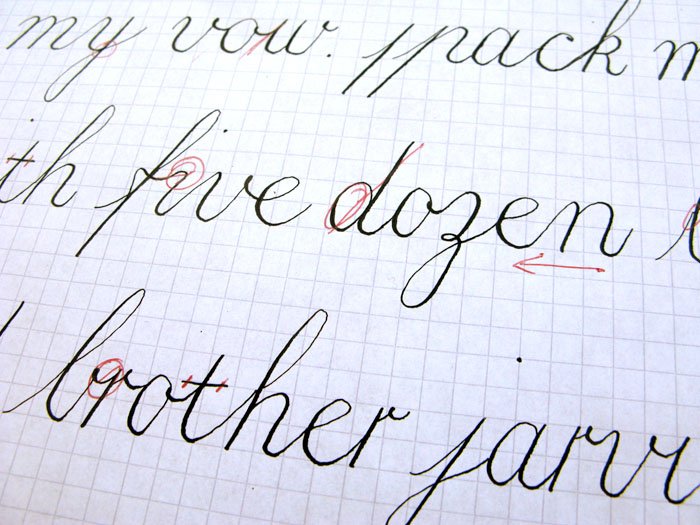 my vow. pack m
th five dozen
brother jarv